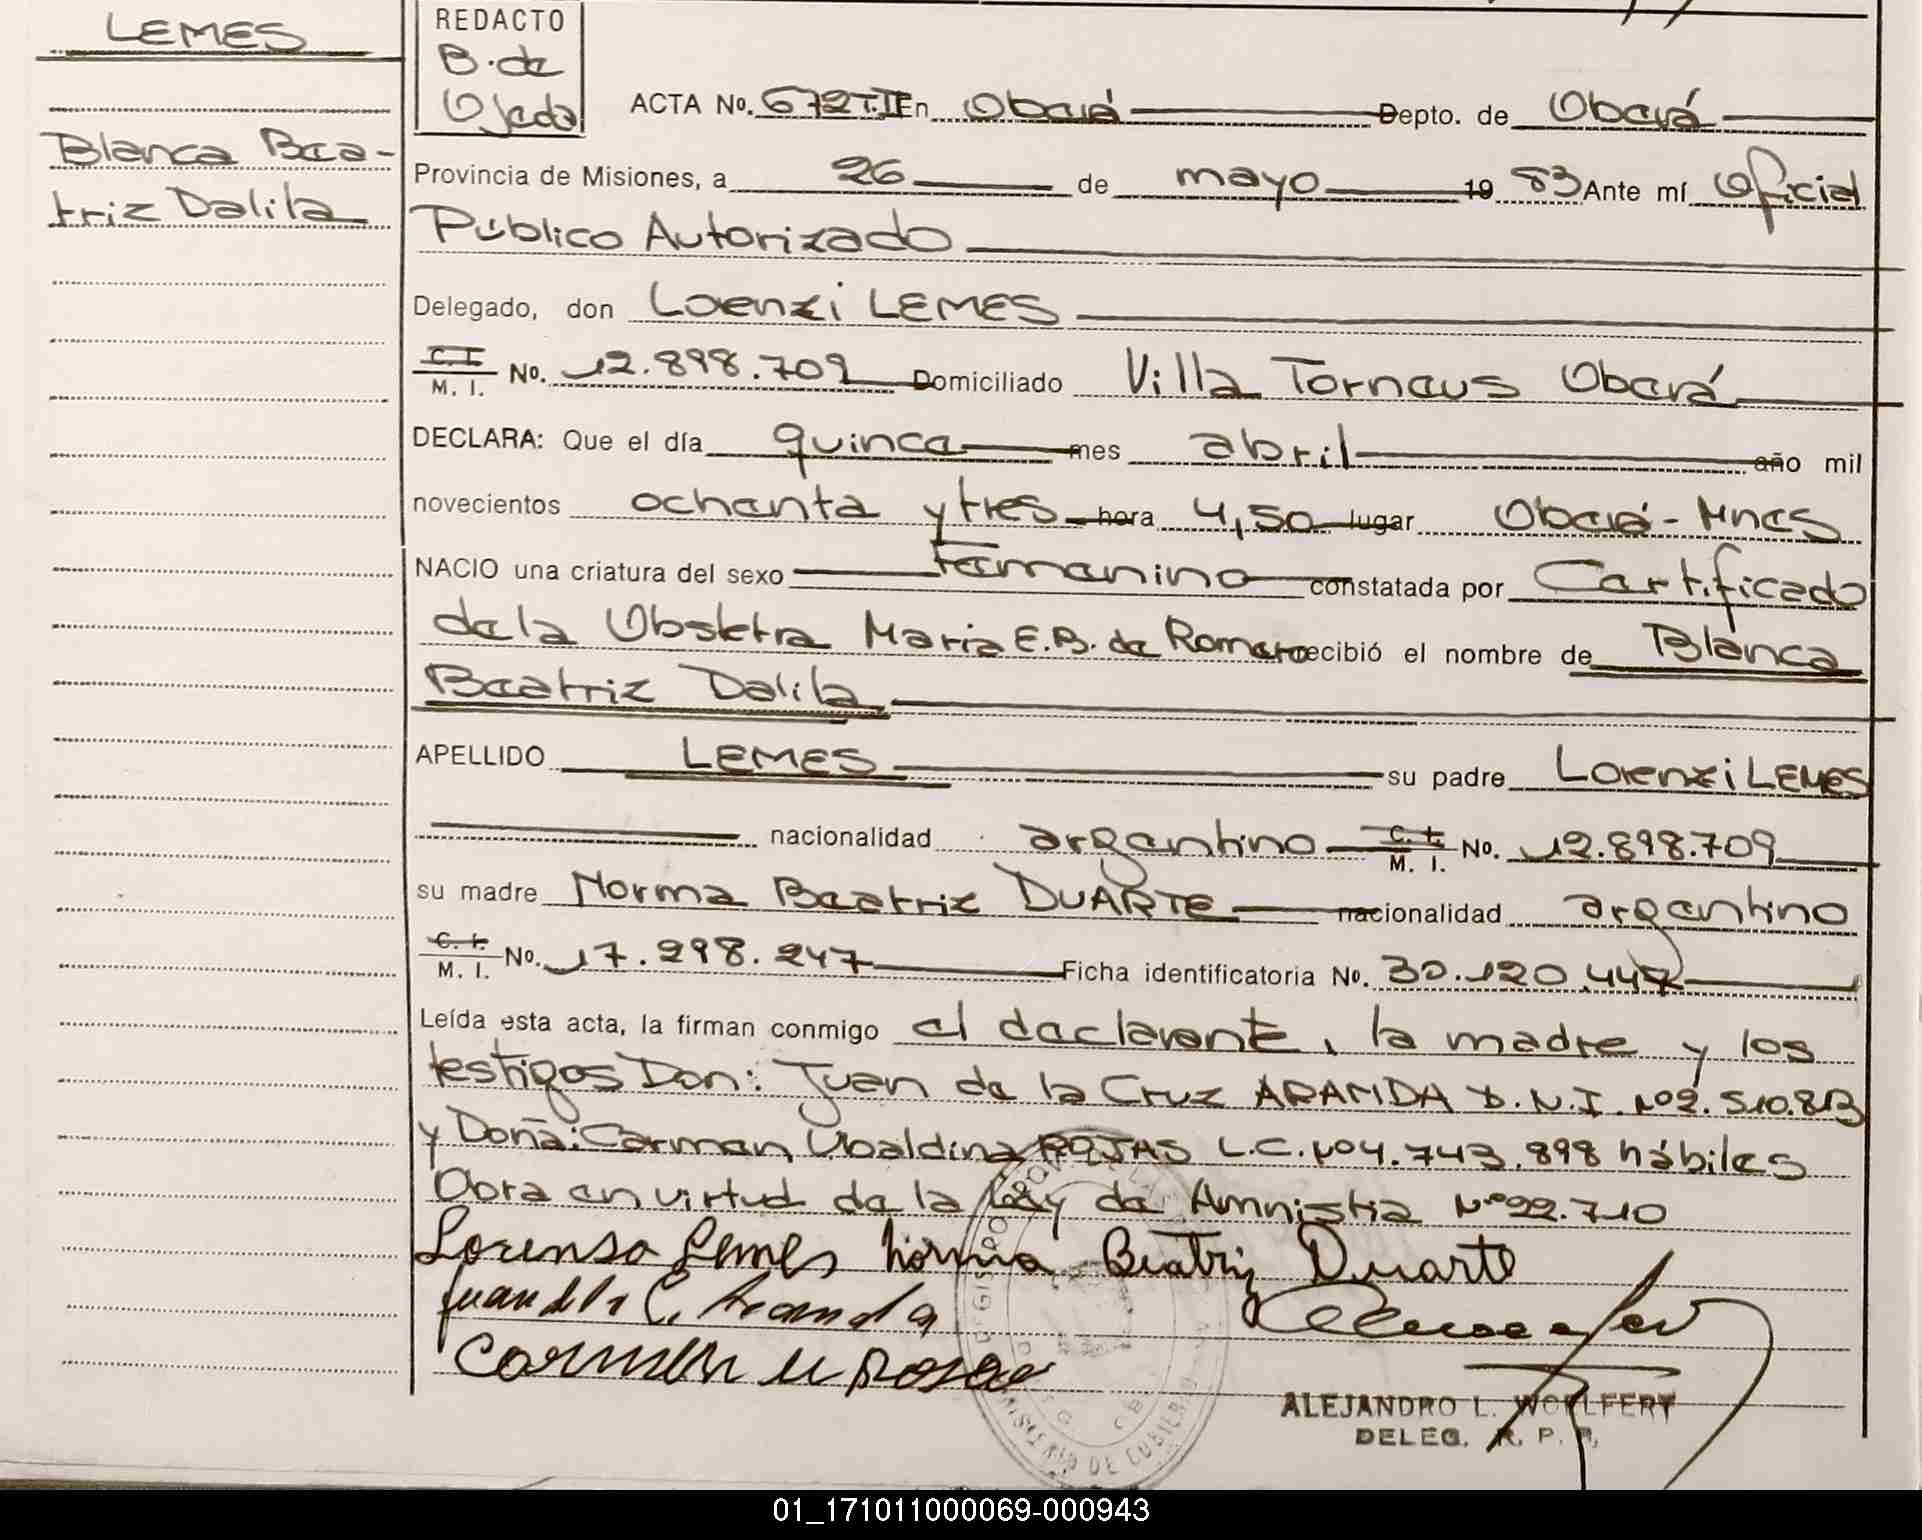 LEMES
Blanca Bea-
triz Dalila
REDACTO
B. de
Ojeda
ACTA No. 672 T.II En Oberá Depto. de Oberá
Provincia de Misiones, a 26 de mayo 19 83 Ante mí Oficial
Público Autorizado
Delegado, don Lorenzi LEMES
C.I. M. I. No. 12.898.709 Domiciliado Villa Torneus Oberá
DECLARA: Que el día quince mes abril año mil
novecientos ochenta y tres hora 4,50 lugar Oberá - Mnes
NACIO una criatura del sexo Femenino constatada por Certificado
de la Obstetra Maria E.B. de Romero recibió el nombre de Blanca
Beatriz Dalila
APELLIDO LEMES su padre Lorenzi LEMES
nacionalidad argentino C. I. M. I. No. 12.898.709
su madre Norma Beatriz DUARTE nacionalidad argentino
C. I. M. I. No. 17.298.247 Ficha identificatoria No. 30.120.447
Leída esta acta, la firman conmigo el declarante, la madre y los
testigos Don: Juan de la Cruz ARANDA D.N.I. Nº 2.510.813
y Doña: Carmen Ubaldina ROJAS L.C. Nº 4.743.898 hábiles
Obra en virtud de la Ley de Amnistia Nº 22.710
Lorenso Lemes Norma Beatriz Duarte
Juan de la C. Aranda
Carmen U Rojas
ALEJANDRO L. WOELFERT
DELEG. R. P. P.
01_171011000069-000943